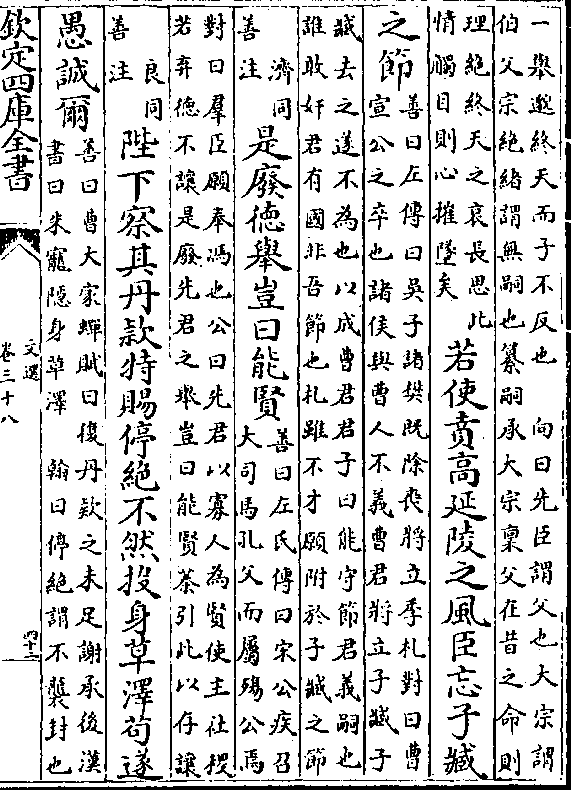 一舉邈終天而子不反也　向曰先臣謂父也大宗謂
伯父宗絶緒謂無嗣也纂嗣承大宗稟父在昔之命則
理絶終天之哀長思此
情觸目則心摧墜矣
若使賁高延陵之風臣忘子臧
之節
善曰左傳曰吳子諸樊既除喪將立季札對曰曹
宣公之卒也諸侯與曹人不義曹君將立子臧子
臧去之遂不為也以成曹君君子曰能守節君義嗣也
誰敢奸君有國非吾節也札雖不才願附於子臧之節
濟同
善注
是廢德舉豈曰能賢
善曰左氏傳曰宋公疾召
大司馬孔父而屬殤公焉
對曰羣臣願奉馮也公曰先君以寡人為賢使主社稷
若弃德不讓是廢先君之舉豈曰能賢㮈引此以存讓
良同
善注
陛下察其丹款特賜停絶不然投身草澤苟遂
愚誠爾
善曰曹大家蟬賦曰復丹欵之未足謝承後漢
書曰朱寵隱身草澤　翰曰停絶謂不襲封也
欽定四庫全書
文選
卷三十八
四十三